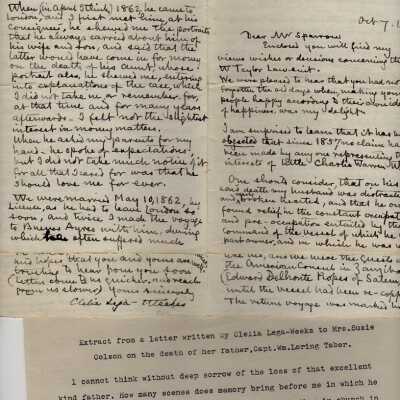 When (in April I think) 1862, he came to
London, and I first met him, at his
Consignees, he shewed me the portraits
that he always carried about him of
his wife and son, and said that the
latter would have come in for money
on the death of his Aunt whose
portrait also, he shewed me, entering
into explanations of the case, which
I did not take in or remember, for
at that time and for many years
afterwards I felt not the slightest
interest in money matters.
When he asked my parents for my
hand, he spoke of expectations
but I did not take much notice of it
for all that I cared for was that he
should love me for ever.
We were married May 10, 1862, by
Licence, as he had to leave London so
soon, and twice I made the voyage
to Buenos Ayres with him, during
which often suffered much
and hopes that you and yours are
to hear from you soon
(letters come to us quicker, and reach
from us slower) Yours sincerely
Clelia Lega-Weekes
Oct 7.
Dear Mr Sparrow
Enclosed you will find my
views wishes or decisions concerning the
W Taylor Lawsuit.
We were pleased to hear that you had not
forgotten the old days when making your
people happy according to their own idea
of happiness, was my delight.
I am surprised to learn that it has been
objected that since 1857 no claim has
been made by any one representing the
interests of little Charlie Warren W
One should consider, that on his
death my husband was distracted
and broken hearted, and that he only
found relief in the constant occupation
and pre-occupation entailed by the
command of the vessel of which he was
part owner, and in which he was
we were the Guests of
the American Consul in Zanzibar
(Edward Delhonte Ropes of Salem,
until the vessel had been re-coppered
The return voyage was marked by
Extract from a letter written by Clelia Lega-Weeks to Mrs.Suzie
Colzon on the death of her father,Capt.Wm.Loring Taber.
I cannot think without deep sorrow of the loss of that excellent
kind father. How many scenes does memory bring before me in which he
church in